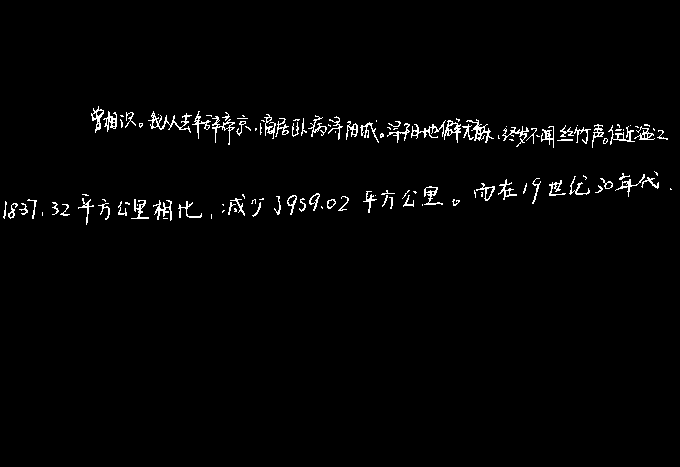 曾相识。我从去年辞帝京,谪居卧病浔阳城。浔阳地僻无音乐,终岁不闻丝竹声。住近湓江
1837.32平方公里相比,减少了959.02平方公里。而在19世纪30年代,